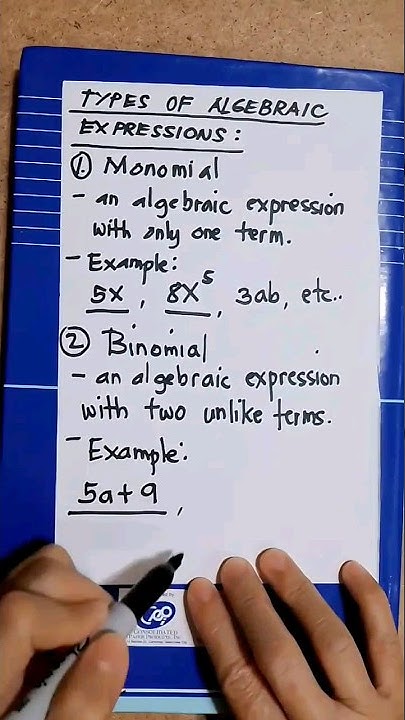 TYPES OF ALGEBRAIC
EXPRESSIONS:
① Monomial
- an algebraic expression
with only one term.
- Example:
5x, 8x⁵, 3ab, etc..
② Binomial
- an algebraic expression
with two unlike terms.
- Example:
5a+9,
CONSOLIDATED
PAPER PRODUCTS, INC